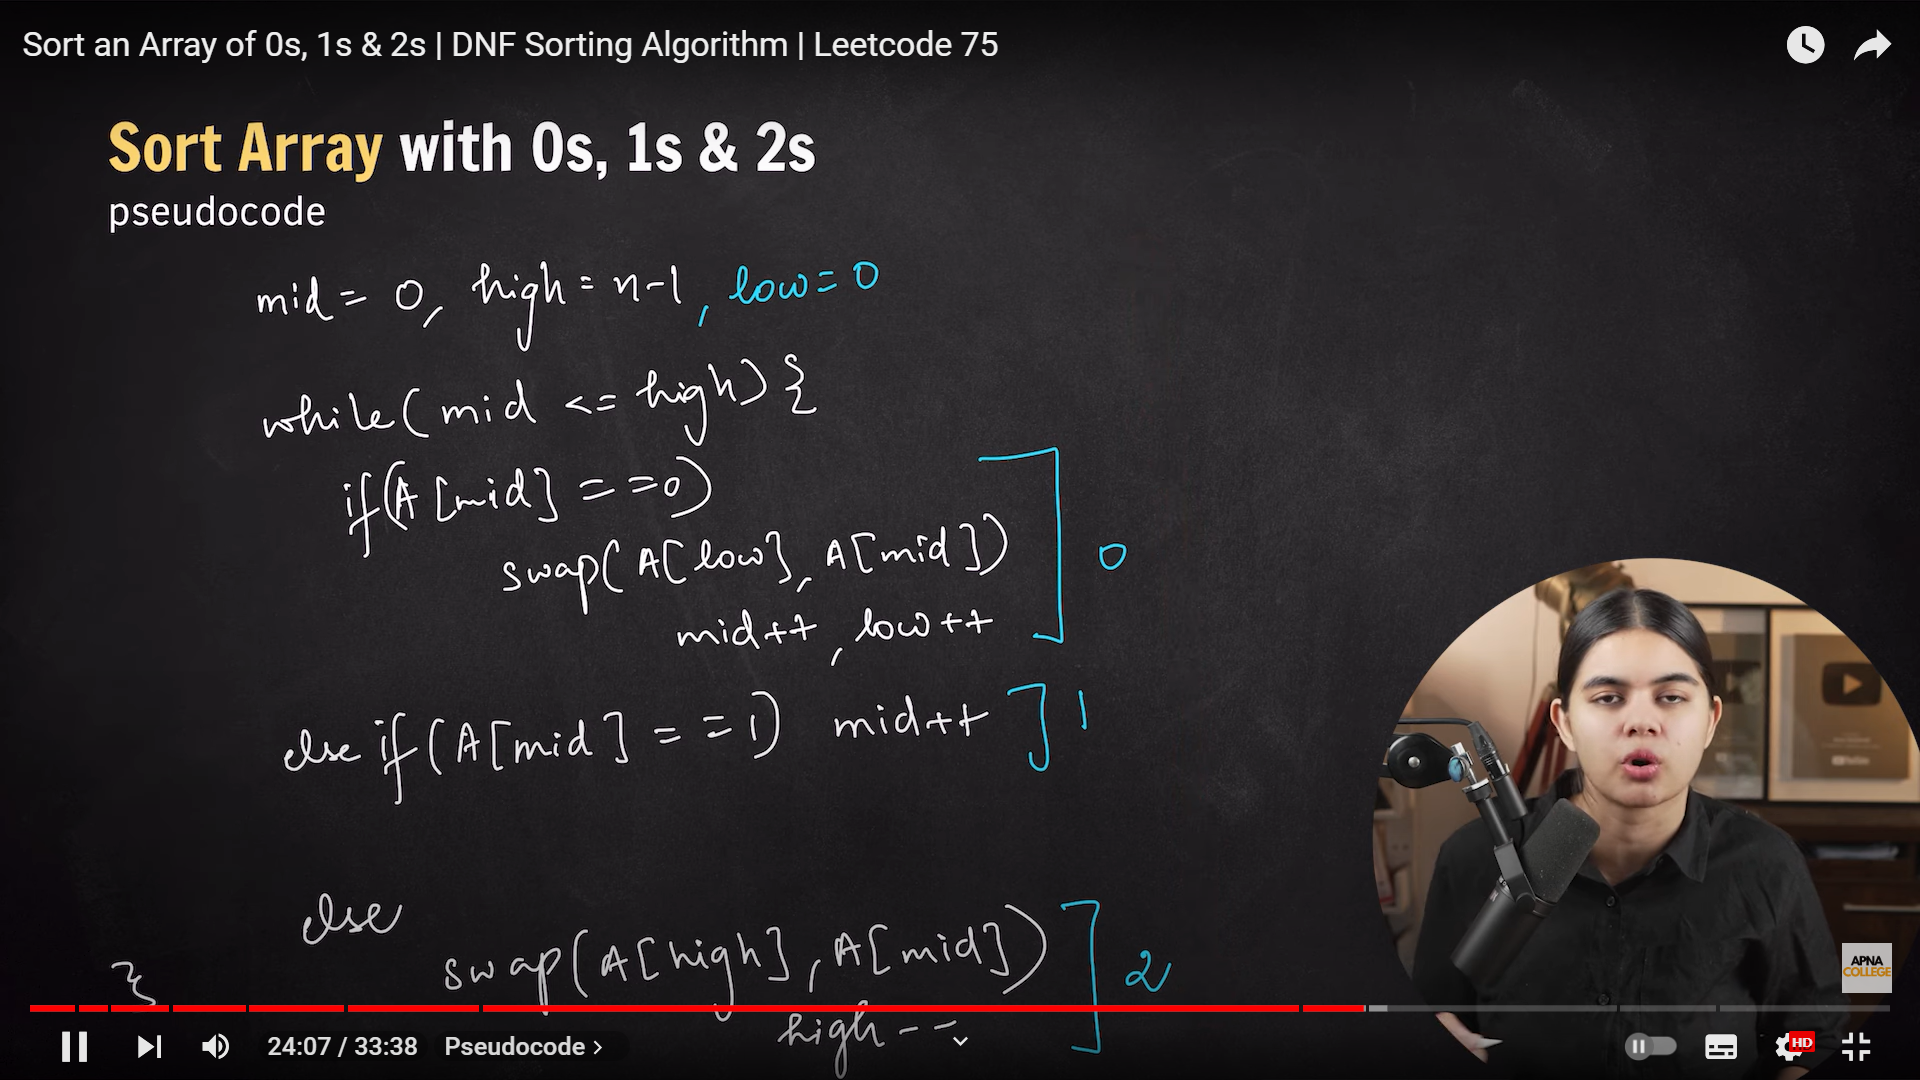 Sort an Array of 0s, 1s & 2s | DNF Sorting Algorithm | Leetcode 75
Sort Array with 0s, 1s & 2s
pseudocode
mid = 0, high = n-1, low = 0
while(mid <= high) {
if(A[mid] == 0)
swap(A[low], A[mid])
mid++, low++
0
else if(A[mid] == 1) mid++
1
else
swap(A[high], A[mid])
high--
2
}
APNA
COLLEGE
24:07 / 33:38 Pseudocode
HD